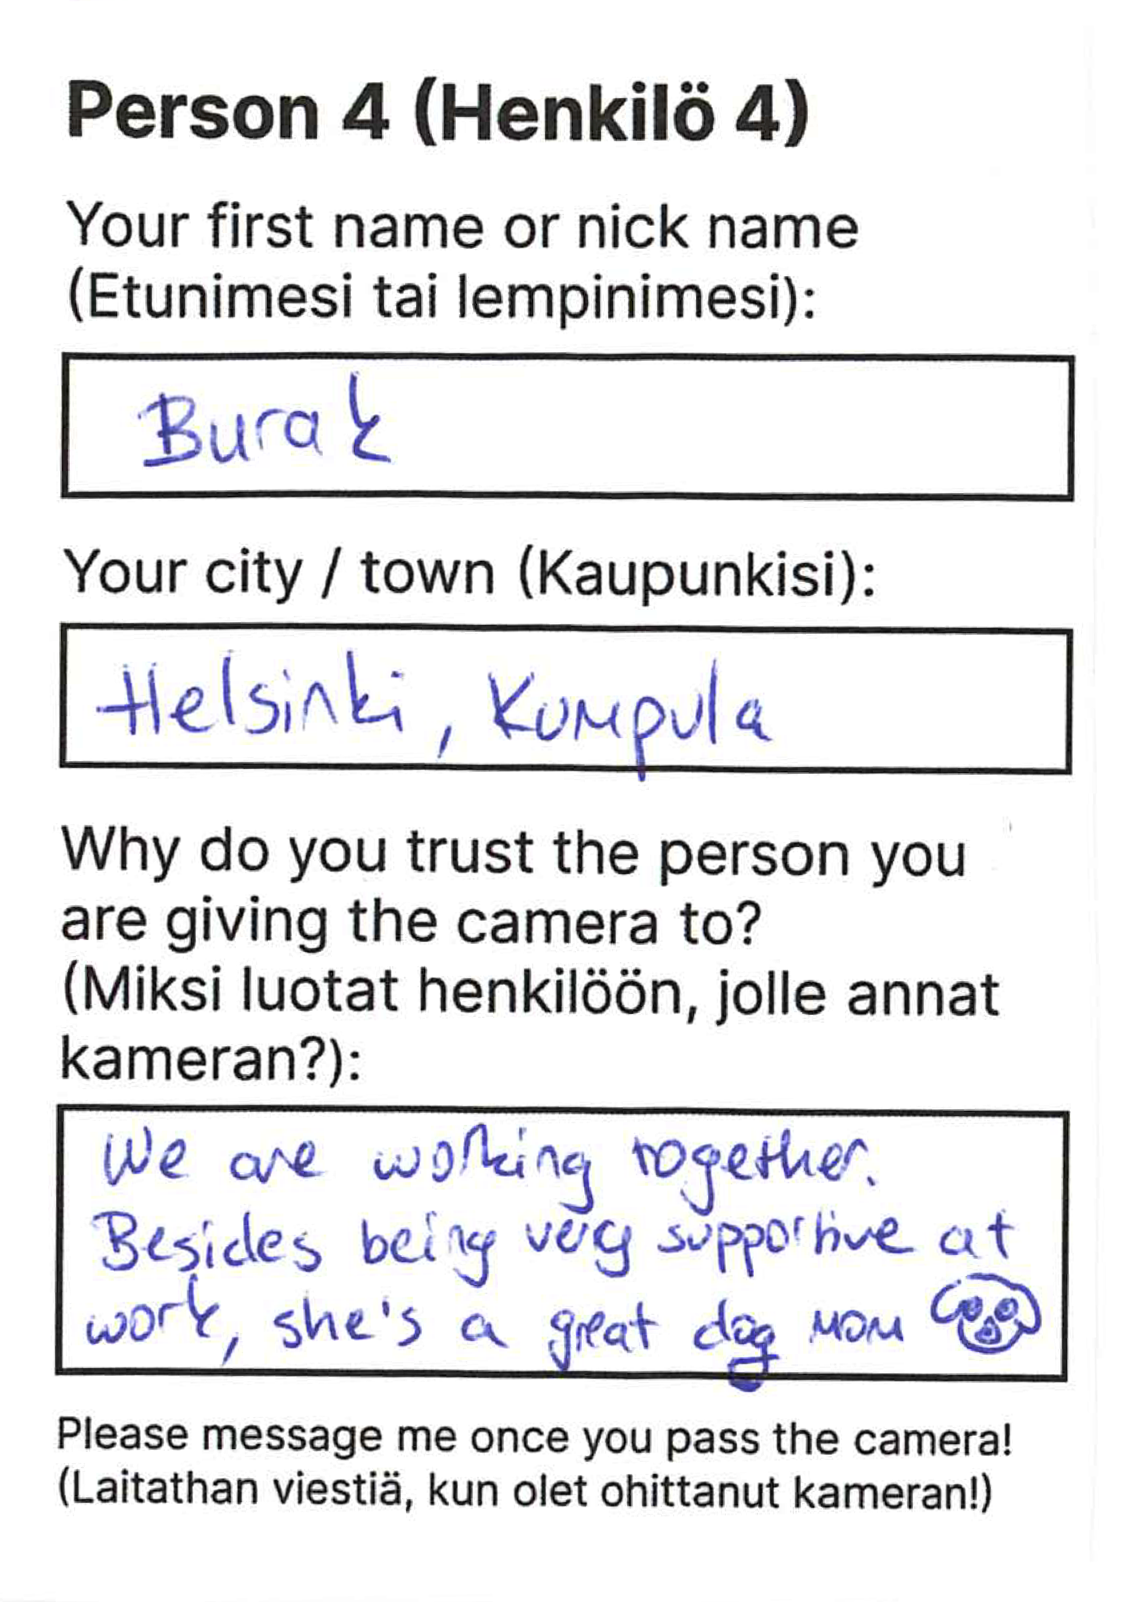 Person 4 (Henkilö 4)
Your first name or nick name
(Etunimesi tai lempinimesi):
Burak
Your city / town (Kaupunkisi):
Helsinki, Kumpula
Why do you trust the person you
are giving the camera to?
(Miksi luotat henkilöön, jolle annat
kameran?):
We are working together.
Besides being very supportive at
work, she's a great dog mom
Please message me once you pass the camera!
(Laitathan viestiä, kun olet ohittanut kameran!)